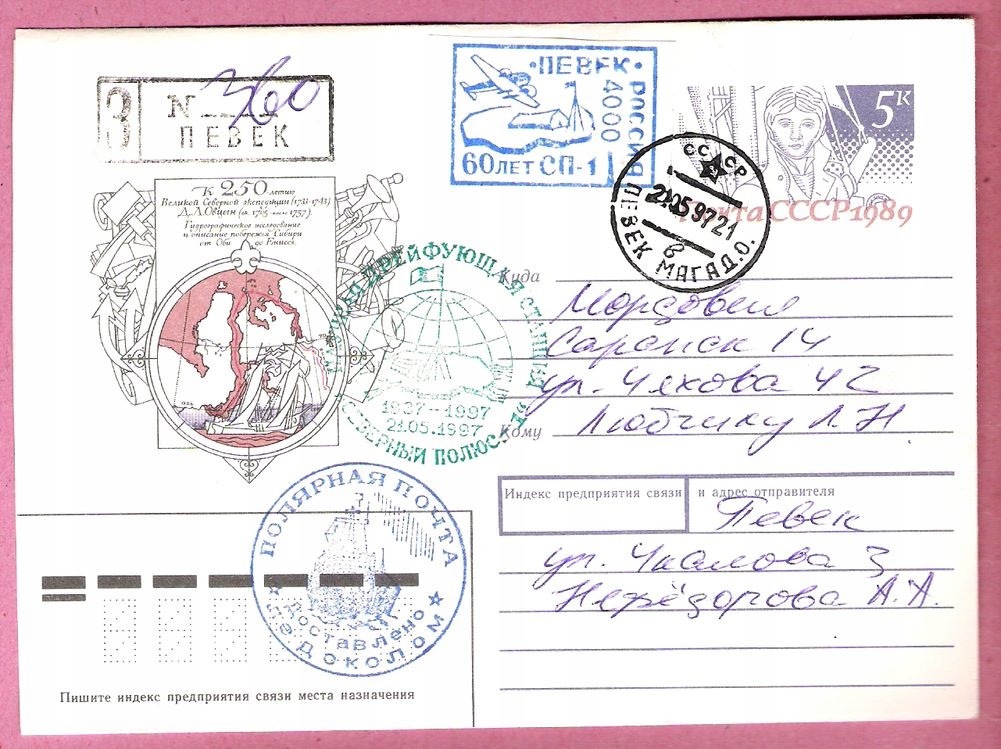 З № 360
ПЕВЕК
•ПЕВЕК•
РОССИЯ
4000
60 ЛЕТ СП-1
5к
Почта СССР 1989
СССР
21.05.97 21
б
ПЕВЕК МАГАД.О.
К 250-летию
Великой Северной экспедиции (1733-1743)
Д.Л.Овцын
Гидрографическое исследование
и описание побережья Сибири
от Оби до Енисея.
ДРЕЙФУЮЩАЯ СТАНЦИЯ
1937--1997
21.05.1997
СЕВЕРНЫЙ ПОЛЮС-1
Куда
Мордовия
Саранск 14
ул. Чехова 42
Кому
Любчику Л. Н
Индекс предприятия связи и адрес отправителя
Певек
ул. Чкалова 3
А. А.
ПОЛЯРНАЯ ПОЧТА
Доставлено
ледоколом
Пишите индекс предприятия связи места назначения